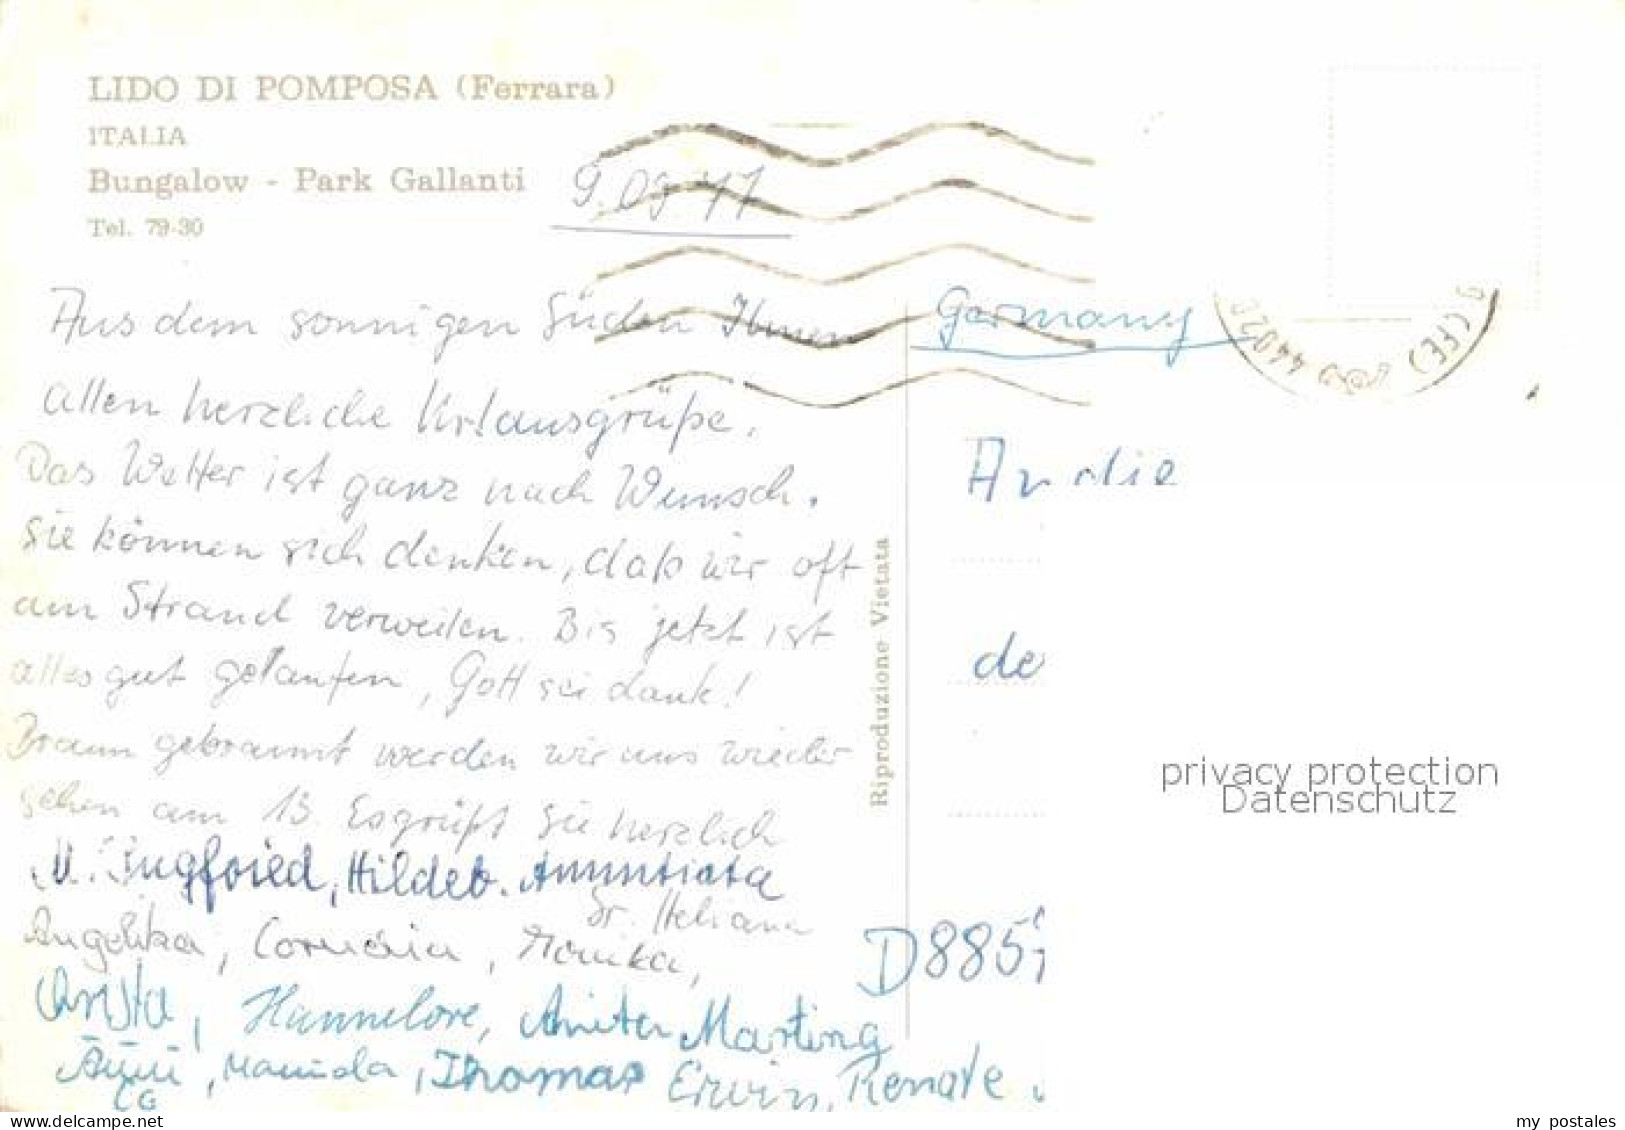 LIDO DI POMPOSA (Ferrara)
ITALIA
Bungalow - Park Gallanti
Tel. 79-30
9.09.77
Aus dem sonnigen Süden Ihnen
allen herzliche Urlausgrüße.
Das Wetter ist ganz nach Wunsch.
Sie können sich denken, daß wir oft
am Strand verweilen. Bis jetzt ist
alles gut gelaufen, Gott sei dank!
Braun gebrannt werden wir uns wieder
sehen am 13. Es grüßt Sie herzlich
Hildeb. Annuntiata
Sr. Heliana
Angelika, Cornelia, Monika,
Christa, Hannelore, Anita Martina
Manuela, Thomas Erwin, Renate
Riproduzione Vietata
Germany
(FE)
de
D885
privacy protection
Datenschutz
my postales